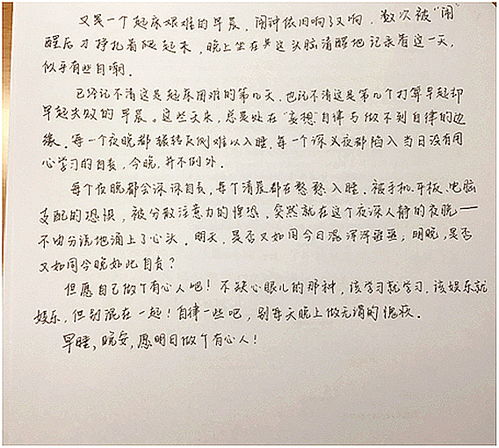 又是一个起床艰难的早晨，闹钟依旧响了又响，数次被“闹”
醒后才挣扎着爬起来，晚上坐在床这头脑清醒地记录着这一天，
似乎有些自嘲。
已经记不清这是起床困难的第几天，也记不清这是第几个打算早起却
早起失败的早晨。这些天来，总是处在“妄想”自律与做不到自律的边
缘。每一个夜晚都辗转反侧难以入睡，每一个深夜都陷入当日没有用
心学习的自责，今晚，并不例外。
每个夜晚都会深深自责，每个清晨都在憨憨入睡。被手机、平板、电脑
支配的恐惧，被分散注意力的惶恐，突然就在这个夜深人静的夜晚——
不由分说地涌上了心头。明天，是否又如同今日浑浑噩噩，明晚，是否
又如同今晚如此自责？
但愿自己做个有心人吧！不缺心眼儿的那种，该学习就学习，该娱乐就
娱乐，但别混在一起！自律一些吧，别每天晚上做无谓的愧疚。
早睡，晚安，愿明日做个有心人！